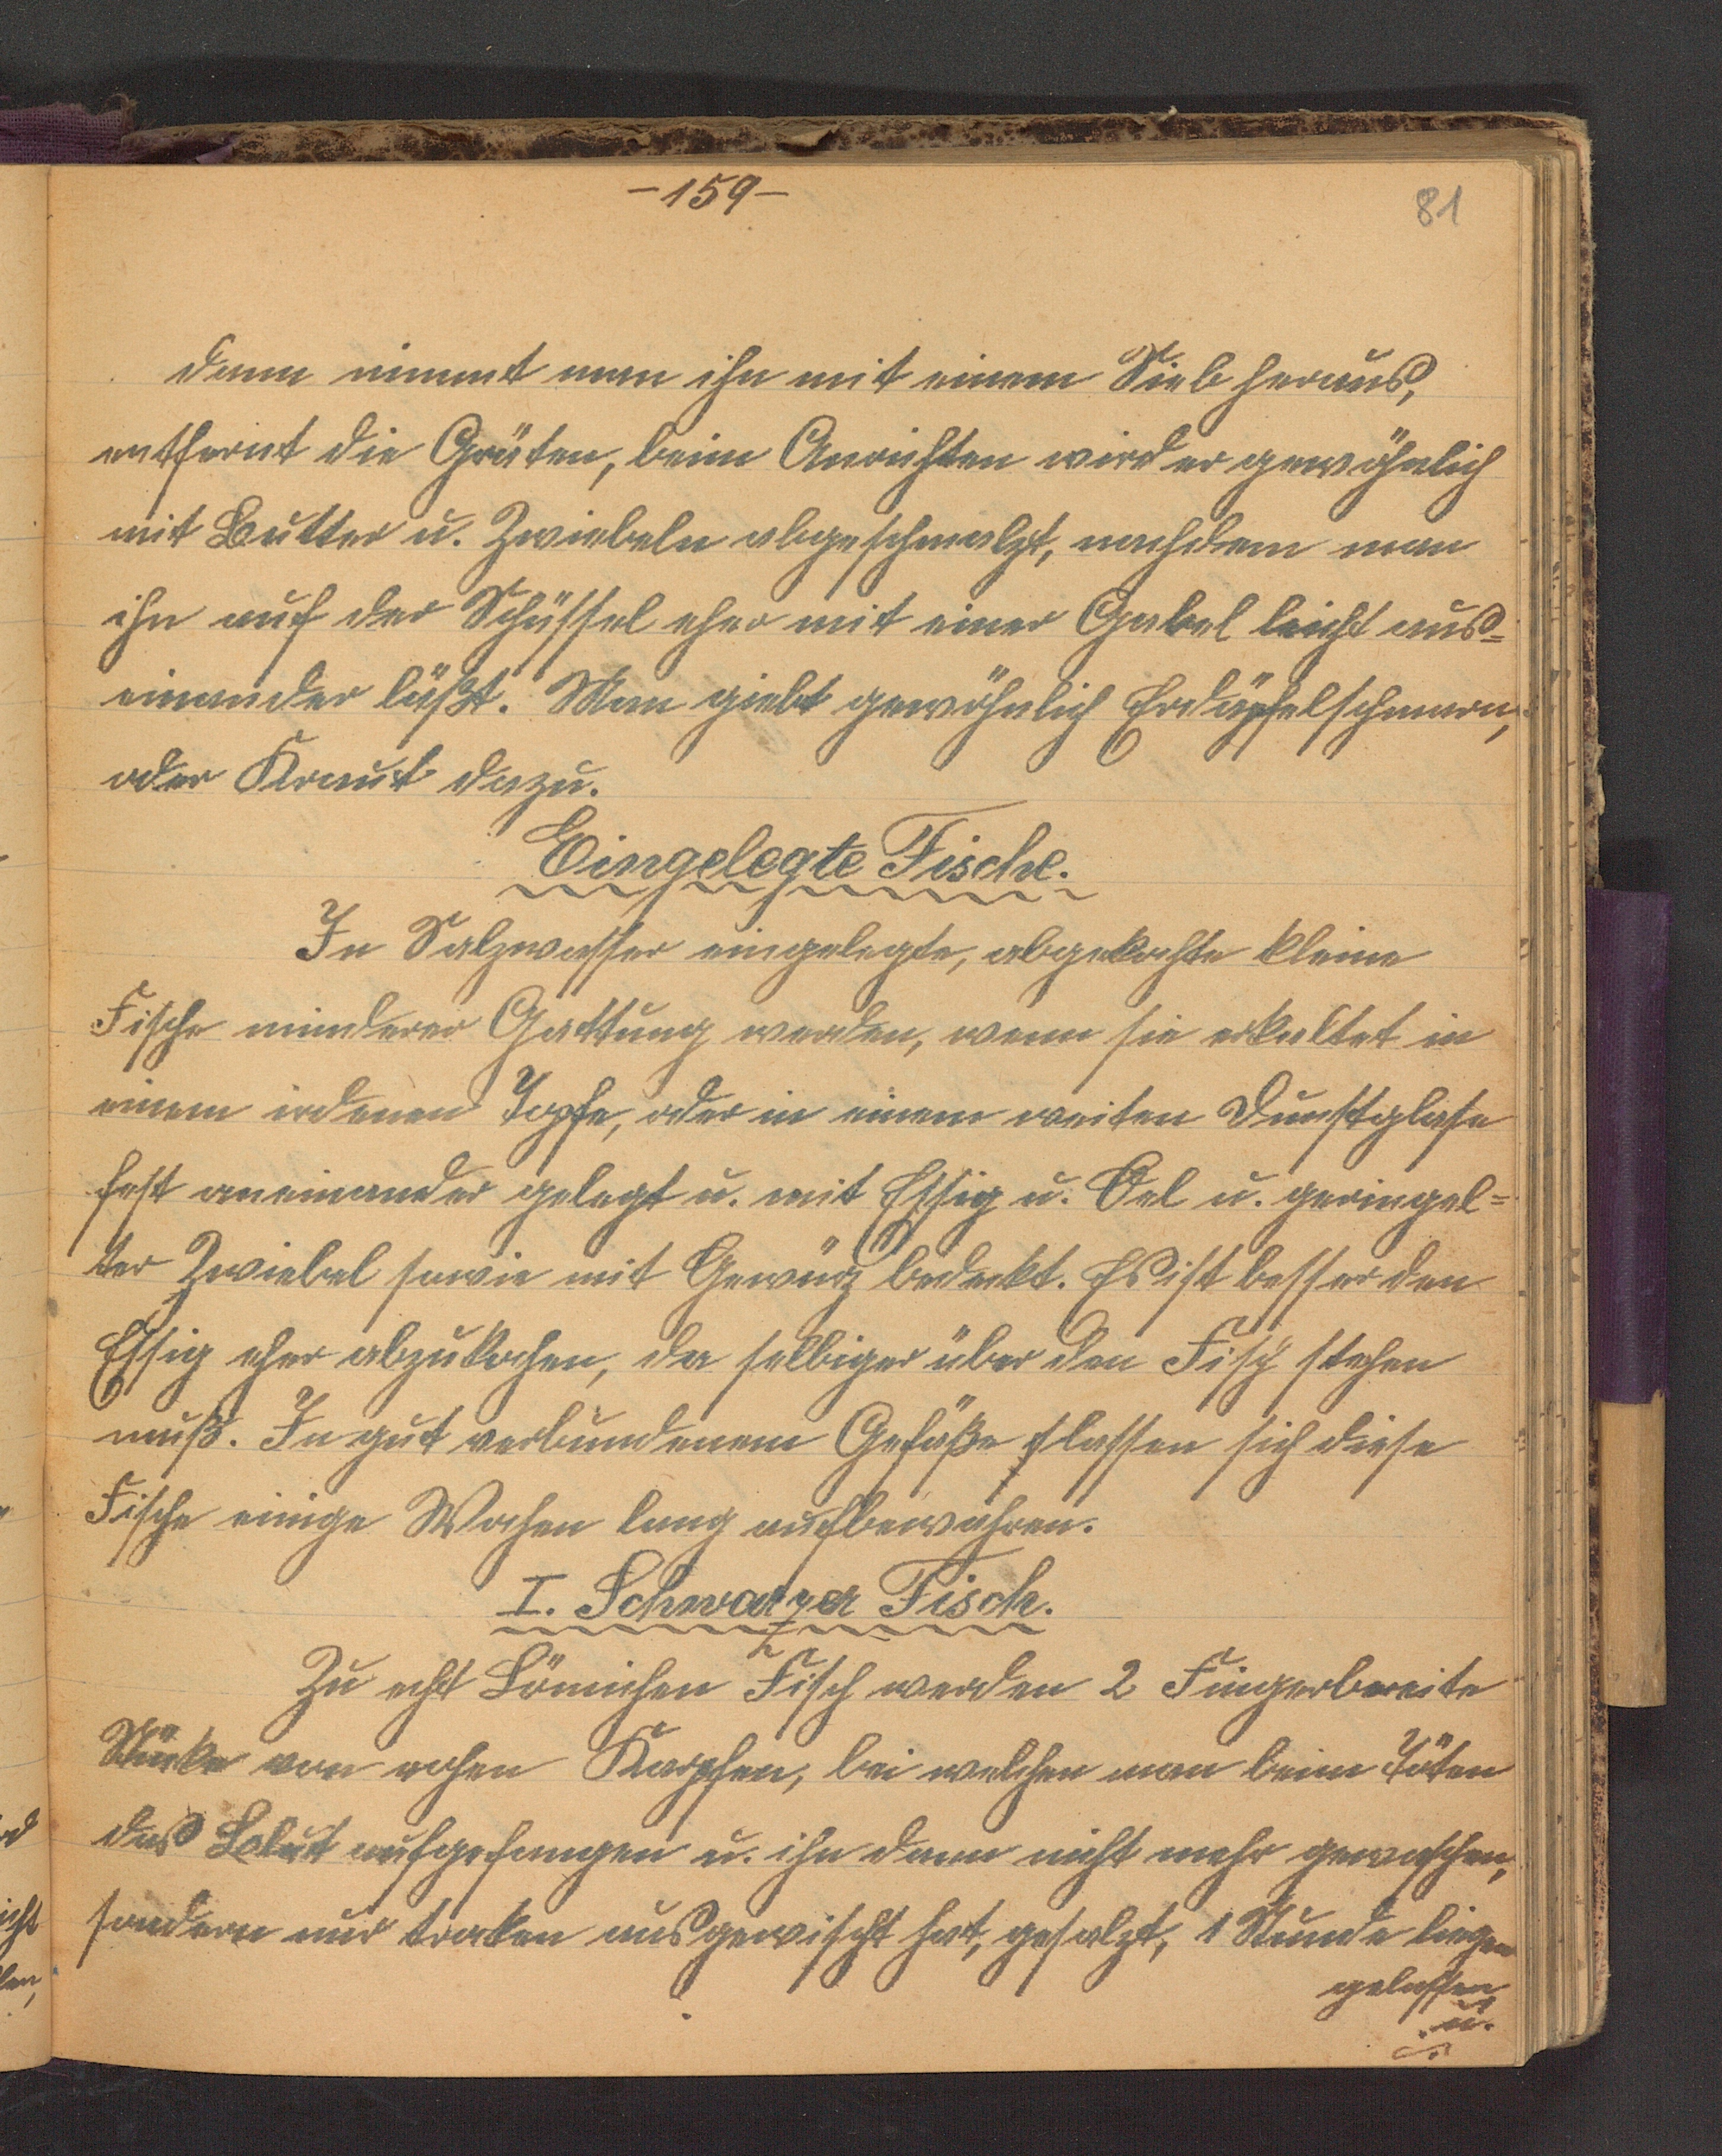 -159-
81
dann nimmt man ihn mit einem Sieb heraus,
entfernt die Gräten, beim Anrichten wird er gewöhnlich
mit Butter u. Zwiebeln abgeschmalzt, nachdem man
ihn auf der Schüssel eher mit einer Gabel leicht aus=
einander läßt. Man giebt gewöhnlich Erdäpfelschmarn,
oder Kraut dazu.
Eingelegte Fische.
In Salzwasser eingelegte, abgekochte kleine
Fische minderer Gattung werden, wenn sie erkaltet in
einem irdenen Topfe, oder in einem weiten Dunstglase
fest aneinander gelegt u. mit Essig u. Oel u. geringel=
ter Zwiebel sowie mit Gewürz bedeckt. Es ist besser den
Essig eher abzukochen, da selbiger über den Fisch stehen
muß. In gut verbundenem Gefäße lassen sich diese
Fische einige Wochen lang aufbewahren.
I. Schwarzer Fisch.
Zu echt Fisch werden 2 Fingerbreite
Stücke von rohen Karpfen, bei welchen man beim Töten
das Blut aufgefangen u. ihn dann nicht mehr gewaschen,
sondern nur troken ausgewischt hat, gesalzt, 1 Stunde liegen
gelassen
u.